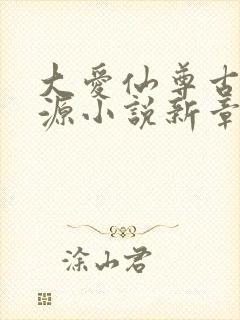 大愛仙尊古
源小說新章
涂山君